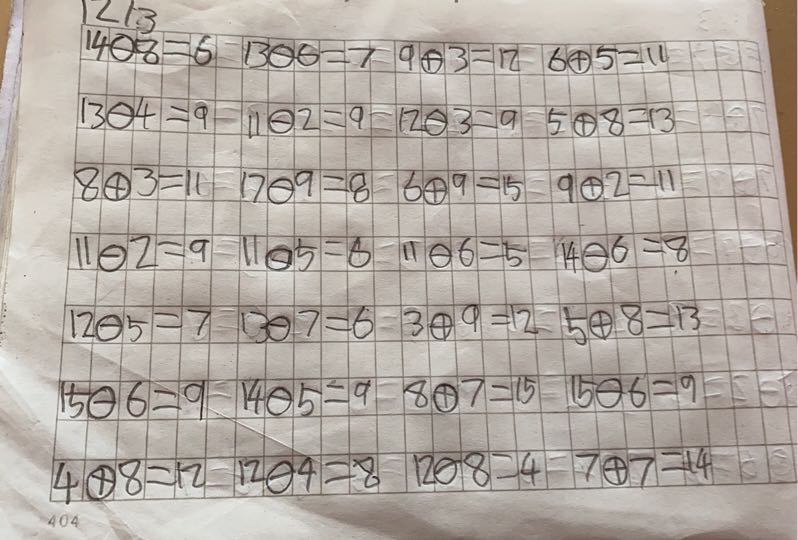 12/3
14⊖8=6 13⊖6=7 9⊕3=12 6⊕5=11
13⊖4=9 11⊖2=9 12⊖3=9 5⊕8=13
8⊕3=11 17⊖9=8 6⊕9=15 9⊕2=11
11⊖2=9 11⊖5=6 11⊖6=5 14⊖6=8
12⊖5=7 13⊖7=6 3⊕9=12 5⊕8=13
15⊖6=9 14⊖5=9 8⊕7=15 15⊖6=9
4⊕8=12 12⊖4=8 12⊖8=4 7⊕7=14
404